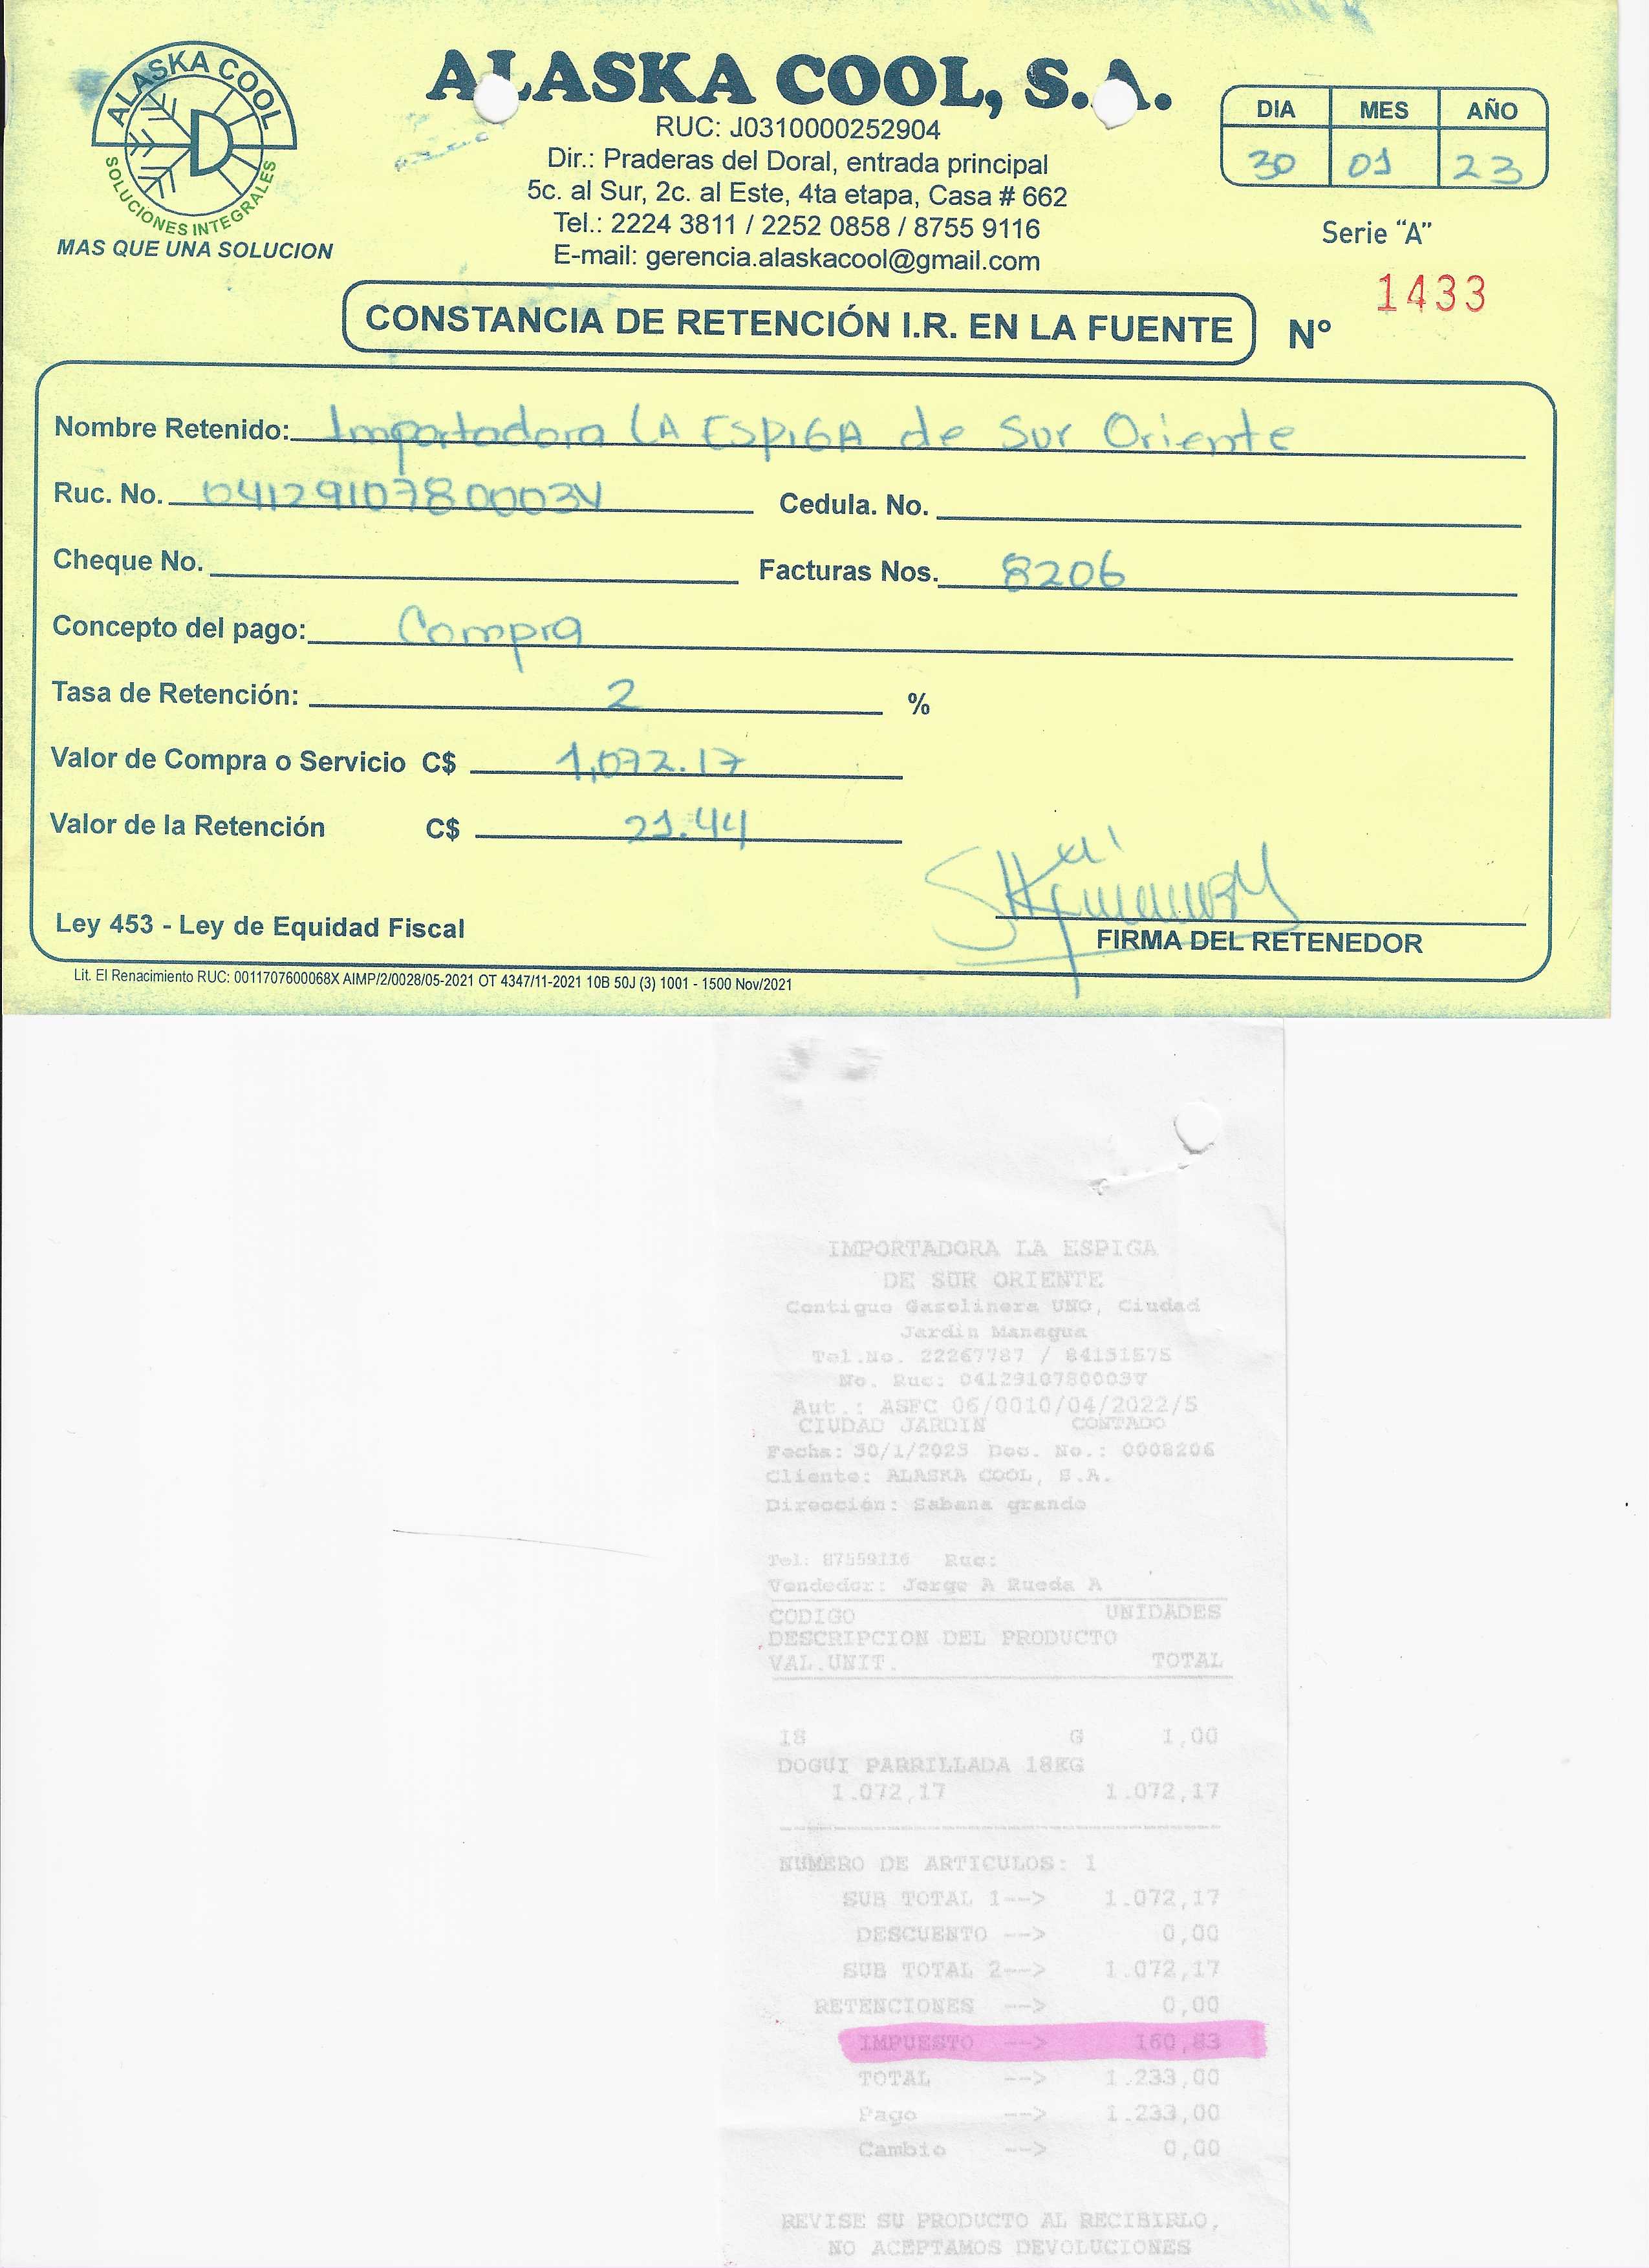 ALASKA COOL
SOLUCIONES INTEGRALES
MAS QUE UNA SOLUCION
ALASKA COOL, S.A.
RUC: J0310000252904
Dir.: Praderas del Doral, entrada principal
5c. al Sur, 2c. al Este, 4ta etapa, Casa # 662
Tel.: 2224 3811 / 2252 0858 / 8755 9116
E-mail: gerencia.alaskacool@gmail.com
DIA MES AÑO
30 01 23
Serie "A"
CONSTANCIA DE RETENCIÓN I.R. EN LA FUENTE N° 1433
Nombre Retenido: Importadora LA ESPIGA de Sur Oriente
Ruc. No. 0412910780003V Cedula. No.
Cheque No. Facturas Nos. 8206
Concepto del pago: Compra
Tasa de Retención: 2 %
Valor de Compra o Servicio C$ 1,072.17
Valor de la Retención C$ 21.44
Ley 453 - Ley de Equidad Fiscal
FIRMA DEL RETENEDOR
Lit. El Renacimiento RUC: 0011707600068X AIMP/2/0028/05-2021 OT 4347/11-2021 10B 50J (3) 1001 - 1500 Nov/2021
IMPORTADORA LA ESPIGA
DE SUR ORIENTE
Contiguo Gasolinera UNO, Ciudad
Jardin Managua
Tel.No. 22267787 / 84151575
No. Ruc: 0412910780003V
Aut.: ASFC 06/0010/04/2022/5
CIUDAD JARDIN CONTADO
Fecha: 30/1/2023 Doc. No.: 0008206
Cliente: ALASKA COOL, S.A.
Dirección: Sabana grande
Tel: 87559116 Ruc:
Vendedor: Jorge A Rueda A
CODIGO UNIDADES
DESCRIPCION DEL PRODUCTO
VAL.UNIT. TOTAL
18 G 1,00
DOGUI PARRILLADA 18KG
1.072,17 1.072,17
NUMERO DE ARTICULOS: 1
SUB TOTAL 1--> 1.072,17
DESCUENTO --> 0,00
SUB TOTAL 2--> 1.072,17
RETENCIONES --> 0,00
IMPUESTO --> 160,83
TOTAL --> 1.233,00
Pago --> 1.233,00
Cambio --> 0,00
REVISE SU PRODUCTO AL RECIBIRLO,
NO ACEPTAMOS DEVOLUCIONES